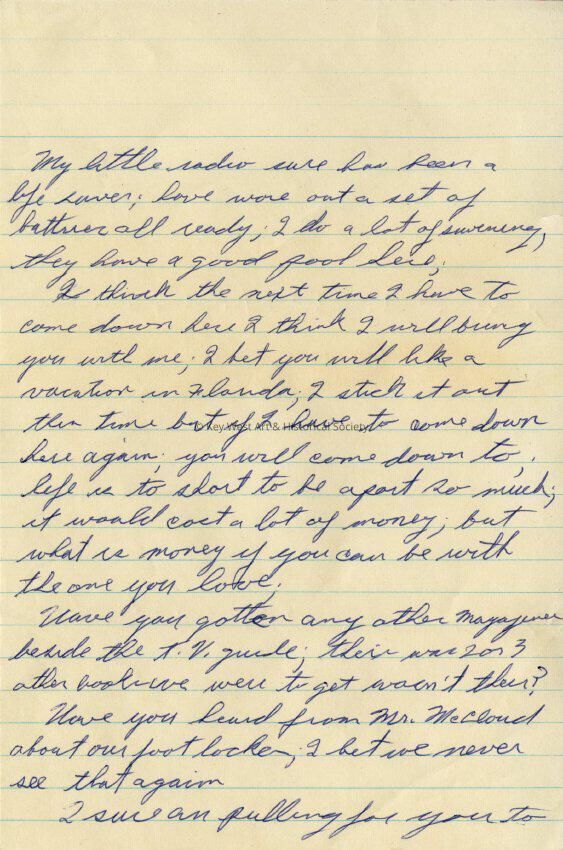 My little radio sure has been a
life saver; have wore out a set of
batteries all ready; I do a lot of swimming,
they have a good pool here;
I think the next time I have to
come down here I think I will bring
you with me; I bet you will like a
vacation in Florida; I stick it out
this time but if I have to come down
© Key West Art & Historical Society
here again; you will come down to,
life is to short to be apart so much;
it would cost a lot of money; but
what is money if you can be with
the one you love;
Have you gotten any other magazines
beside the T.V. guide; their was 2 or 3
other books we were to get wasn't their?
Have you heard from Mr. McCloud
about our foot locker; I bet we never
see that again
I sure am pulling for you to